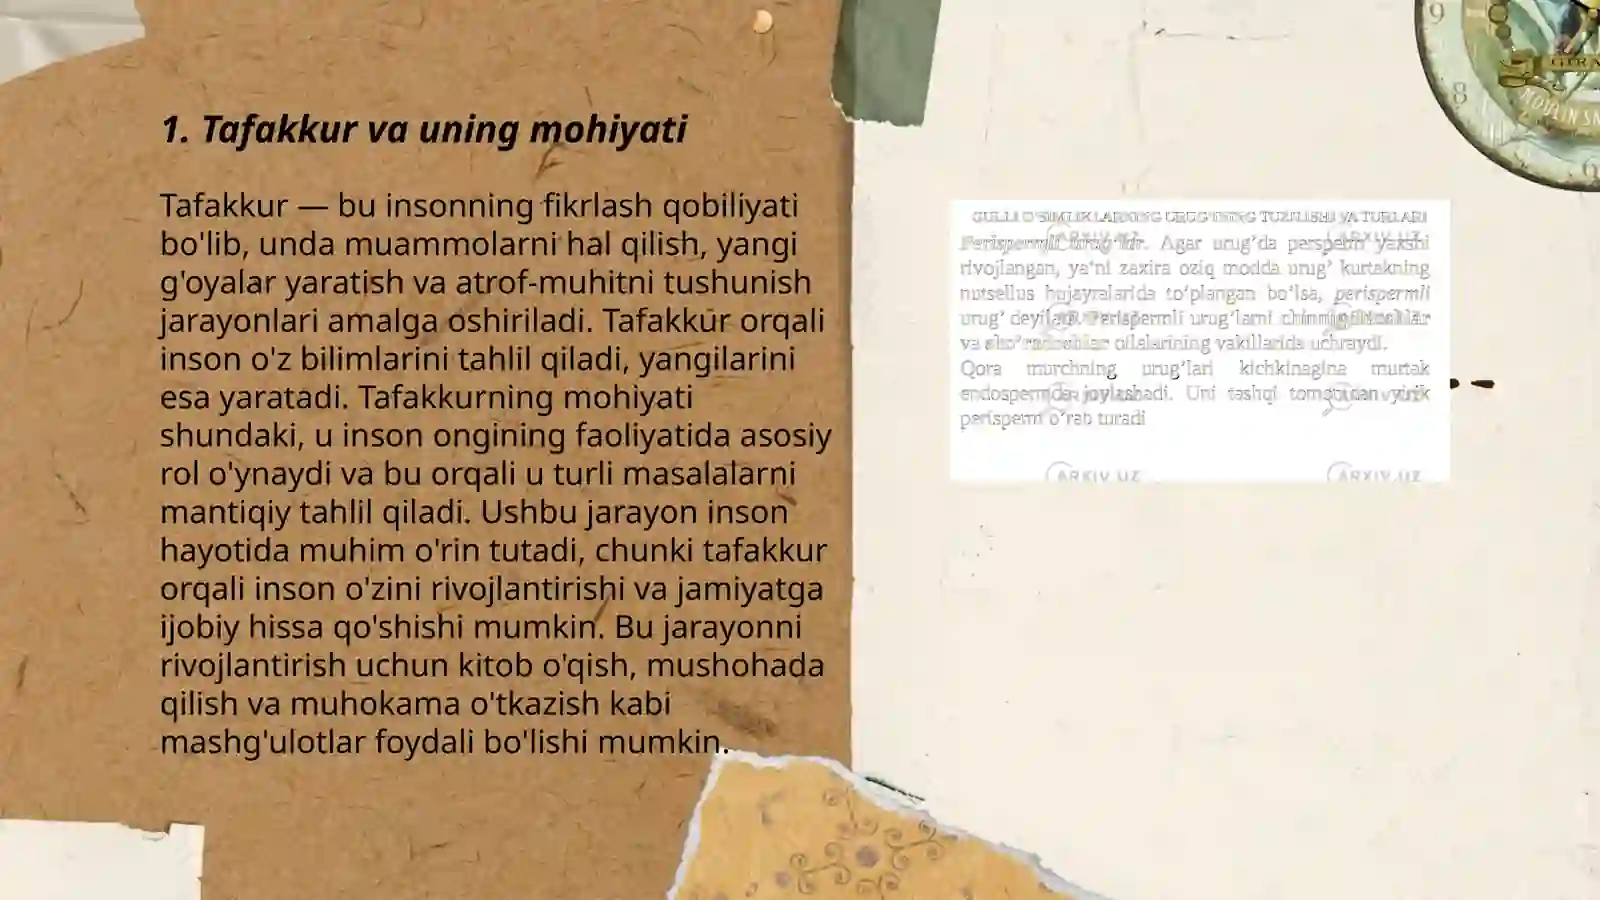 1. Tafakkur va uning mohiyati
Tafakkur — bu insonning fikrlash qobiliyati
bo'lib, unda muammolarni hal qilish, yangi
g'oyalar yaratish va atrof-muhitni tushunish
jarayonlari amalga oshiriladi. Tafakkur orqali
inson o'z bilimlarini tahlil qiladi, yangilarini
esa yaratadi. Tafakkurning mohiyati
shundaki, u inson ongining faoliyatida asosiy
rol o'ynaydi va bu orqali u turli masalalarni
mantiqiy tahlil qiladi. Ushbu jarayon inson
hayotida muhim o'rin tutadi, chunki tafakkur
orqali inson o'zini rivojlantirishi va jamiyatga
ijobiy hissa qo'shishi mumkin. Bu jarayonni
rivojlantirish uchun kitob o'qish, mushohada
qilish va muhokama o'tkazish kabi
mashg'ulotlar foydali bo'lishi mumkin.
GULLI O'SIMLIKLARNING URUG'INING TUZILISHI VA TURLARI
Perispermli urug'lar. Agar urug'da persperm yaxshi
rivojlangan, ya'ni zaxira oziq modda urug' kurtakning
nutsellus hujayralarida to'plangan bo'lsa, perispermli
urug' deyiladi. Perispermli urug'larni
va sho'radoshlar oilalarining vakillarida uchraydi.
Qora murchning urug'lari kichkinagina murtak
endospermda joylashadi. Uni tashqi tomonidan yirik
perisperm o'rab turadi
ARXIV.UZ ARXIV.UZ
9
8
6
MOULIN